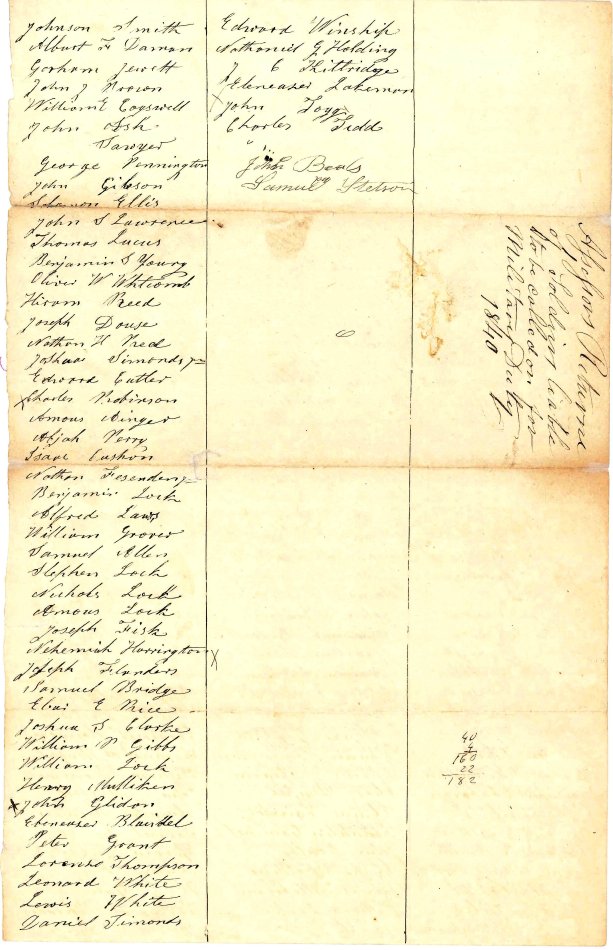 Johnson Smith
Albert F Daman
Gorham Jewett
John J Brown
William E Cogswell
John Ash
Sawyer
George Pennington
John Gibson
Solomon Ellis
John S Lawrence
Thomas Lucus
Benjamin S Young
Oliver W Whitcomb
Hiram Reed
Joseph Douse
Nathan H Reed
Joshua Simonds Jr
Edward Cutler
x Charles Robinson
Amous Winger
Abjah Perry
Isaac Cushon
Nathan Fesenden Jr
Benjamin Lock
Alfred Laws
William Grover
Samuel Allen
Stephen Lock
Nichols Lock
Amous Lock
Joseph Fisk
Nehemiah Harrington x
Joseph Flanders
Samuel Bridge
Eber E Rice
Joshua S Clarke
William P Gibbs
William Lock
Henry Mulliken
x John Glidon
Ebeneaser Blaisdel
Peter Grant
Lorenzo Thompson
Leonard White
Lewis White
Daniel Simonds
Edward Winship
Nathaniel G Holding
J C Kittridge
Ebeneaser Lakeman
x John Fogg
Charles Tidd
John Beals
Samuel Stetson
Assessors Returns
of Soldiers liable
to be called on for
Military Duty
1840
40
4
160
22
182